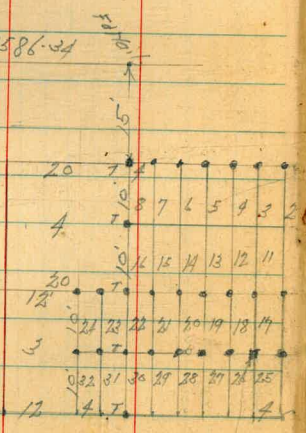 586.34
15'
20 T
10' 8 7 6 5 4 3 2
4 T
10' 16 15 14 13 12 11
20
12' T
10' 24 23 22 21 20 19 18 17
3
10' 32 31 30 29 28 27 26 25
12 4 T 4